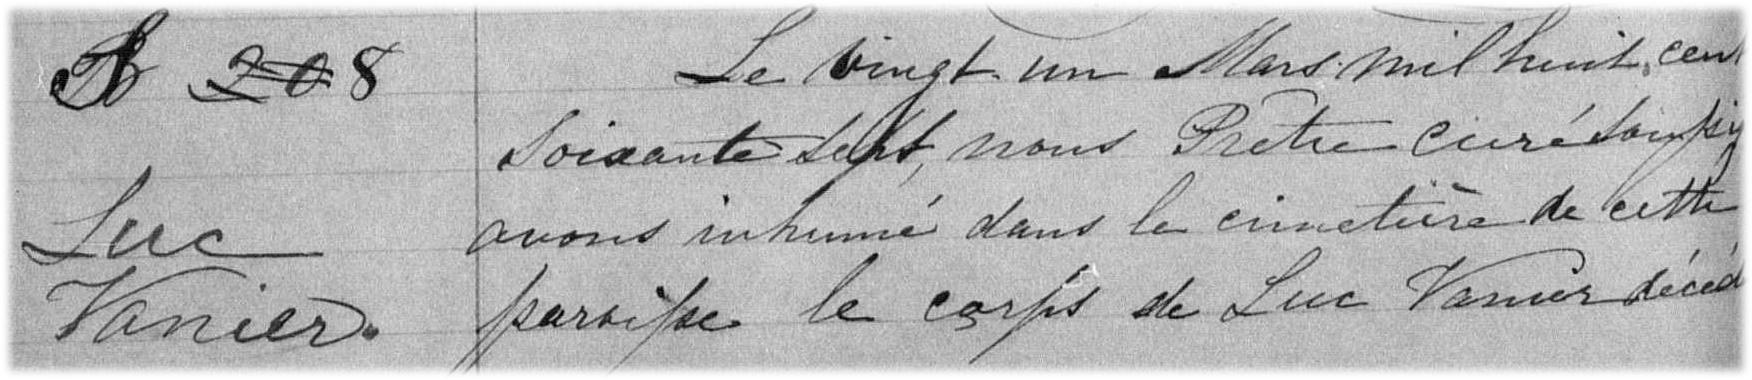 S 208
Luc
Vanier.
Le vingt un Mars mil huit cent
soixante sept, nous Prêtre curé soussig
avons inhumé dans le cimetière de cette
paroisse le corps de Luc Vanier décéd